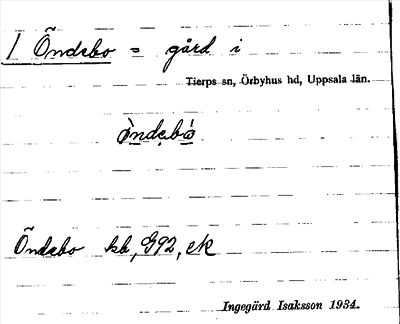 1 Öndebo = gård i
Tierps sn, Örbyhus hd, Uppsala län.
ö̀ndebó
Öndebo kb, G92, ek
Ingegärd Isaksson 1934.